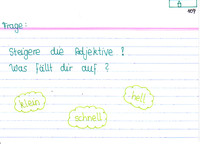 A
109
Frage:
Steigere die Adjektive !
Was fällt dir auf ?
klein
hell
schnell